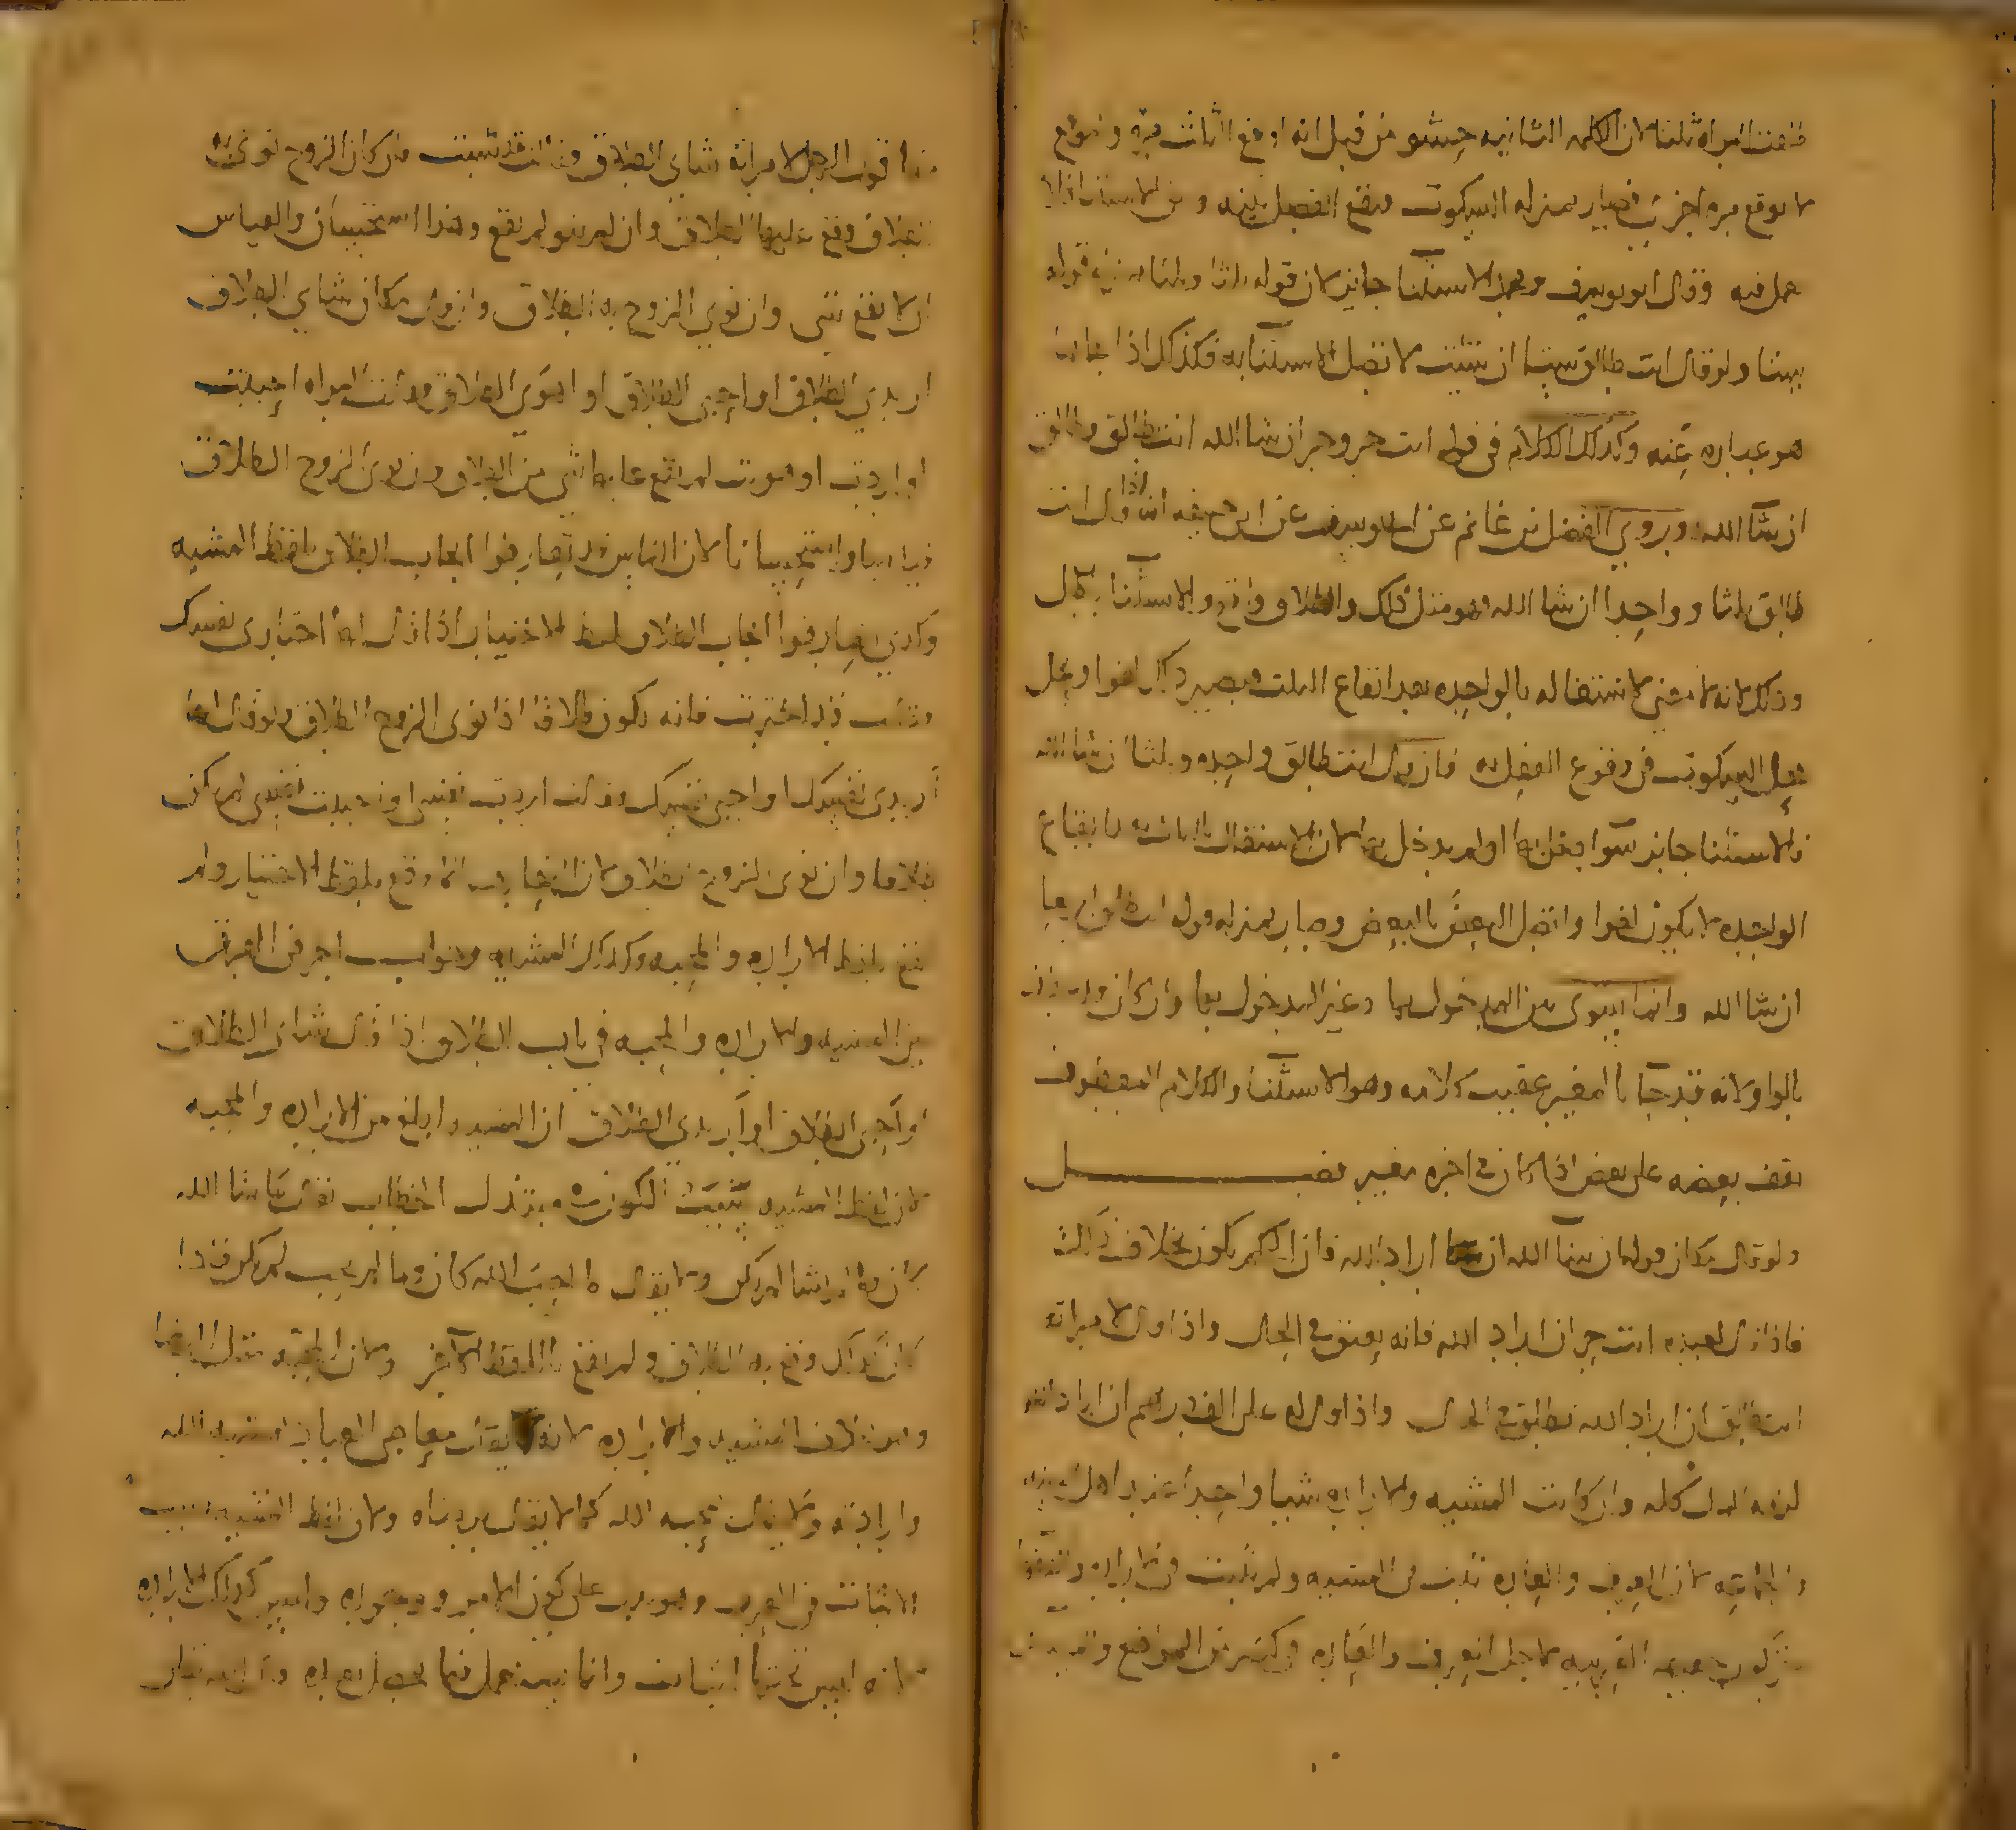 طلقت امراة ثلثا لان الكلمه الثانيه حشو من قبل انه اوقع الثلث مرة
لا يوقع مرة اخرى فصار بمنزله السكوت فيقع الفصل بينه وبين الاستثنا فلا
عمل فيه وقال ابو يوسف ومحمد الاستثنا جايز لان قوله ثلثا وثلثا
ستا ولو قال انت طالق ستا ان شئت لا تفصل الاستثنا به فكذلك اذا
هو عباره عنه وكذلك الكلام في قوله انت حر وحر ان شا الله انت طالق وطالق
ان شا الله وروي الفضل بن غانم عن ابي يوسف عن ابي حنيفه انه اذا قال انت
طالق ثلثا وواحدا ان شا الله فهو مثل ذلك والطلاق واقع والاستثنا باطل
وذلك لانه لا معنى لاشتغاله بالواحده بعد ايقاع الثلث فيصير ذكرا لغوا وعمل
عمل السكوت في وقوع الفصل به فان قال انت طالق واحده وثلثا ان شا الله
فالاستثنا جايز سوا دخل بها او لم يدخل بها لان الاستغال بالثلث بعد ايقاع
الواحده لا يكون لغوا واتصل البعض بالبعض وصار بمنزله قوله انت طالق اربعا
ان شا الله وانما يستوى بين المدخول بها وغير المدخول بها وان كان
بالواو لانه قد جا بالمغير عقيب كلامه وهو الاستثنا والكلام المعطوف
يقف بعضه على بعض اذا كان في اخره مغير فصل
ولو قال مكان قوله ان شا الله ان اراد الله فان الحكم يكون بخلاف ذلك
فاذا قال لعبده انت حر ان اراد الله فانه يعتق في الحال واذا قال لامراته
انت طالق ان اراد الله تطلق في الحال واذا قال له على الف درهم ان اراد الله
لزمه المال كله وان كانت المشيه والاراده شيا واحدا عند اهل السنه
والجماعه لان العرف والعاده ثبت في المشيه ولم يثبت في الاراده
الغريبه لاجل العرف والعاده في كثير من المواضع
قول الرجل لامراته شاي الطلاق فقالت قد شيت فان كان الزوج نوى به
الطلاق وقع عليها الطلاق وان لم ينو لم يقع وهذا استحسان والقياس
ان لا يقع شي وان نوى الزوج به الطلاق وان قال مكان شاي الطلاق
اريدي الطلاق او احبي الطلاق او اهوي الطلاق فقالت المراه احببت
او اردت او هويت لم يقع عليها شي من الطلاق وان نوى الزوج الطلاق
قياسا واستحسانا لان الناس قد تعارفوا ايجاب الطلاق بلفظ المشيه
وكذلك تعارفوا ايجاب الطلاق بلفظ الاختيار اذا قال لها اختاري نفسك
فقالت قد اخترت فانه يكون طلاقا اذا نوى الزوج الطلاق ولو قال لها
اريدي نفسك او احبي نفسك فقالت اردت نفسي او احببت نفسي لم يكن
طلاقا وان نوى الزوج الطلاق لان التعارف انما وقع بلفظ الاختيار ولم
يقع بلفظ الاراده والمحبه وكذلك المشيه وجواب اخر في الفرق
بين المشيه والاراده والمحبه في باب الطلاق اذا قال شاي الطلاق
او احبي الطلاق او اريدي الطلاق ان المشيه ابلغ من الاراده والمحبه
لان لفظ المشيه يثبت الكون الخطاب يقال ما شا الله
كان وما لم يشا لم يكن ولا يقال ما احب الله كان وما لم يحب لم يكن فلذا
كان كذلك وقع به الطلاق ولم يقع باللفظ الاخر ولان المحبه مثل الرضا
وهو خلاف المشيه والاراده لانه يقال معاصي العباد بمشيه الله
وارادته ولا يقال بمحبه الله كما لا يقال برضاه ولان لفظ المشيه
لاثبات في العرف وهو يدل على كون الامر ووجوده وليس كذلك الاراده
لانه ليس تحتها اثبات وانما يستعمل فيما